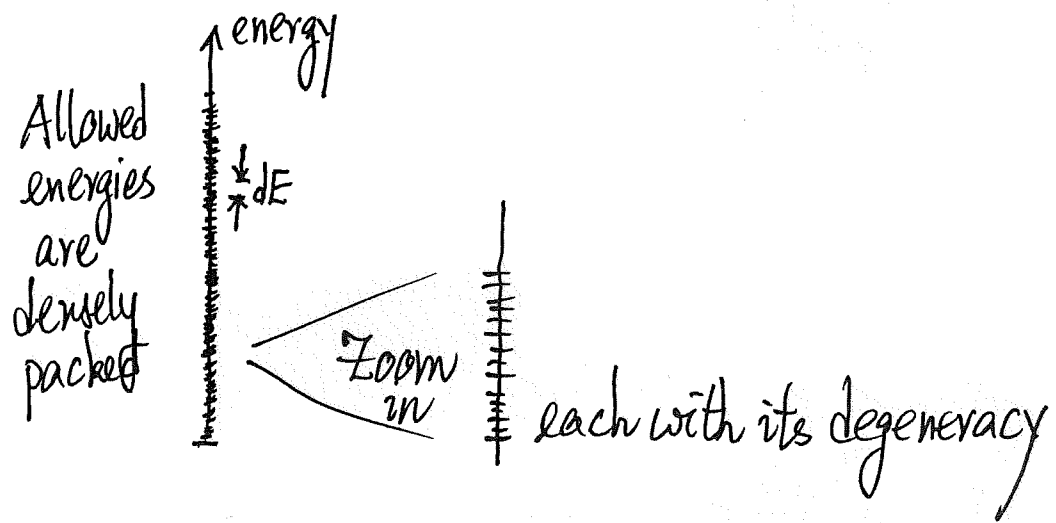 energy
Allowed
energies
are
densely
packed
dE
Zoom
in
each with its degeneracy